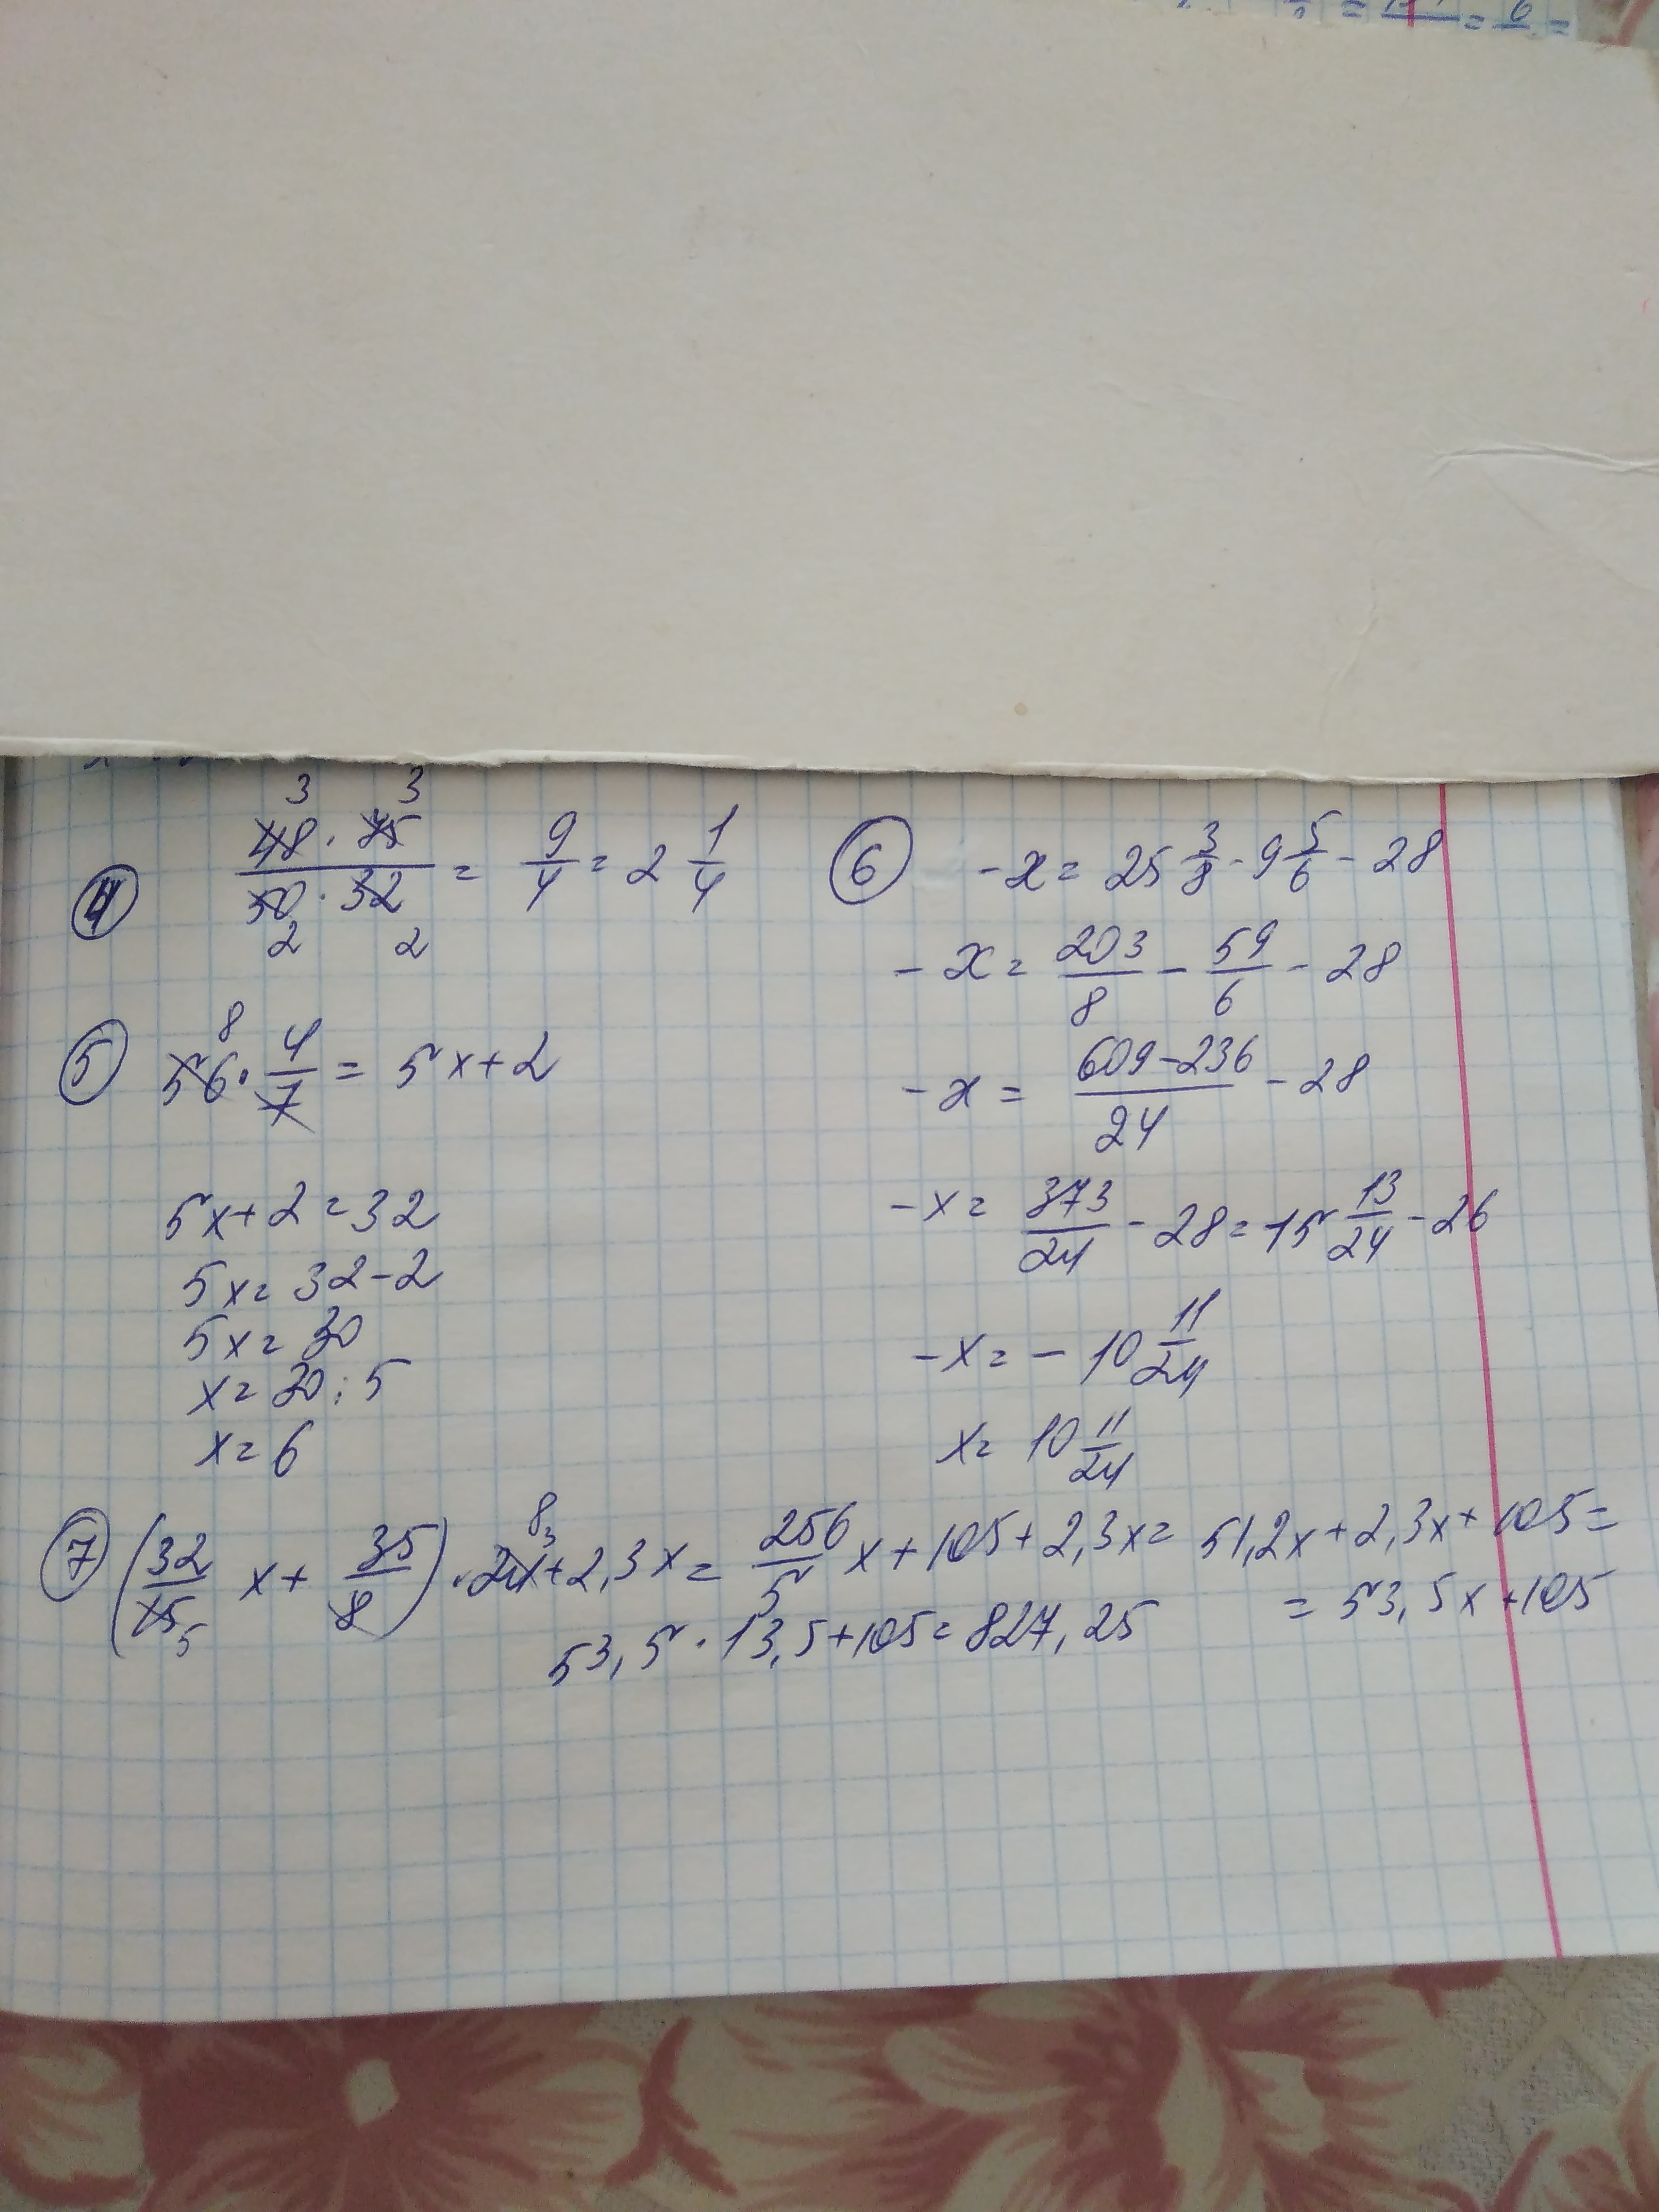 ④ 48 · 75 / 50 · 32 = 9/4 = 2 1/4
3 3
2 2
⑤ 56 · 4/7 = 5x+2
8
5x+2=32
5x=32-2
5x=30
x=30:5
x=6
⑥ -x= 25 3/8 - 9 5/6 - 28
-x= 203/8 - 59/6 - 28
-x= 609-236/24 - 28
-x= 373/24 - 28= 15 13/24 - 26
-x= - 10 11/24
x= 10 11/24
⑦ (32/15 x + 35/8) · 24+2,3x= 256/5 x+105+2,3x= 51,2x+2,3x+105=
5 8 3
= 53,5x+105
53,5 · 13,5+105=827,25